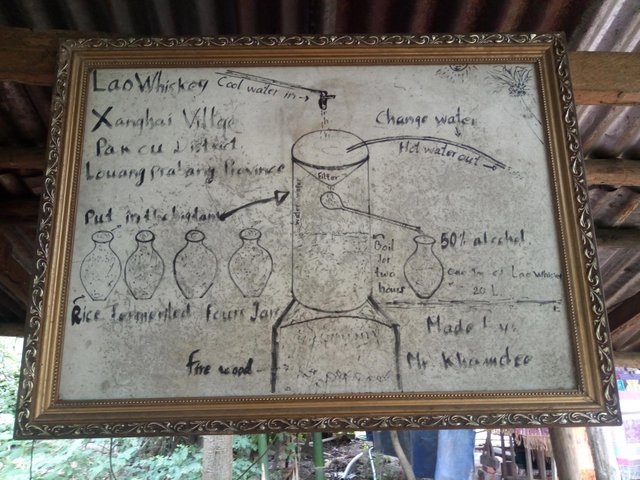 Lao Whiskey
Cool water in
Xanghai Village
Change water
Pak cu District
Hot water out
Louangprabang Province
Filter
Put in the big tam
water rate
50% alcohol
Boil
for
two
hours
one Jar of Lao Whiskey
20 L
Rice Fermented Fours Jars
Made by:
Mr. Khamdeo
Fire wood